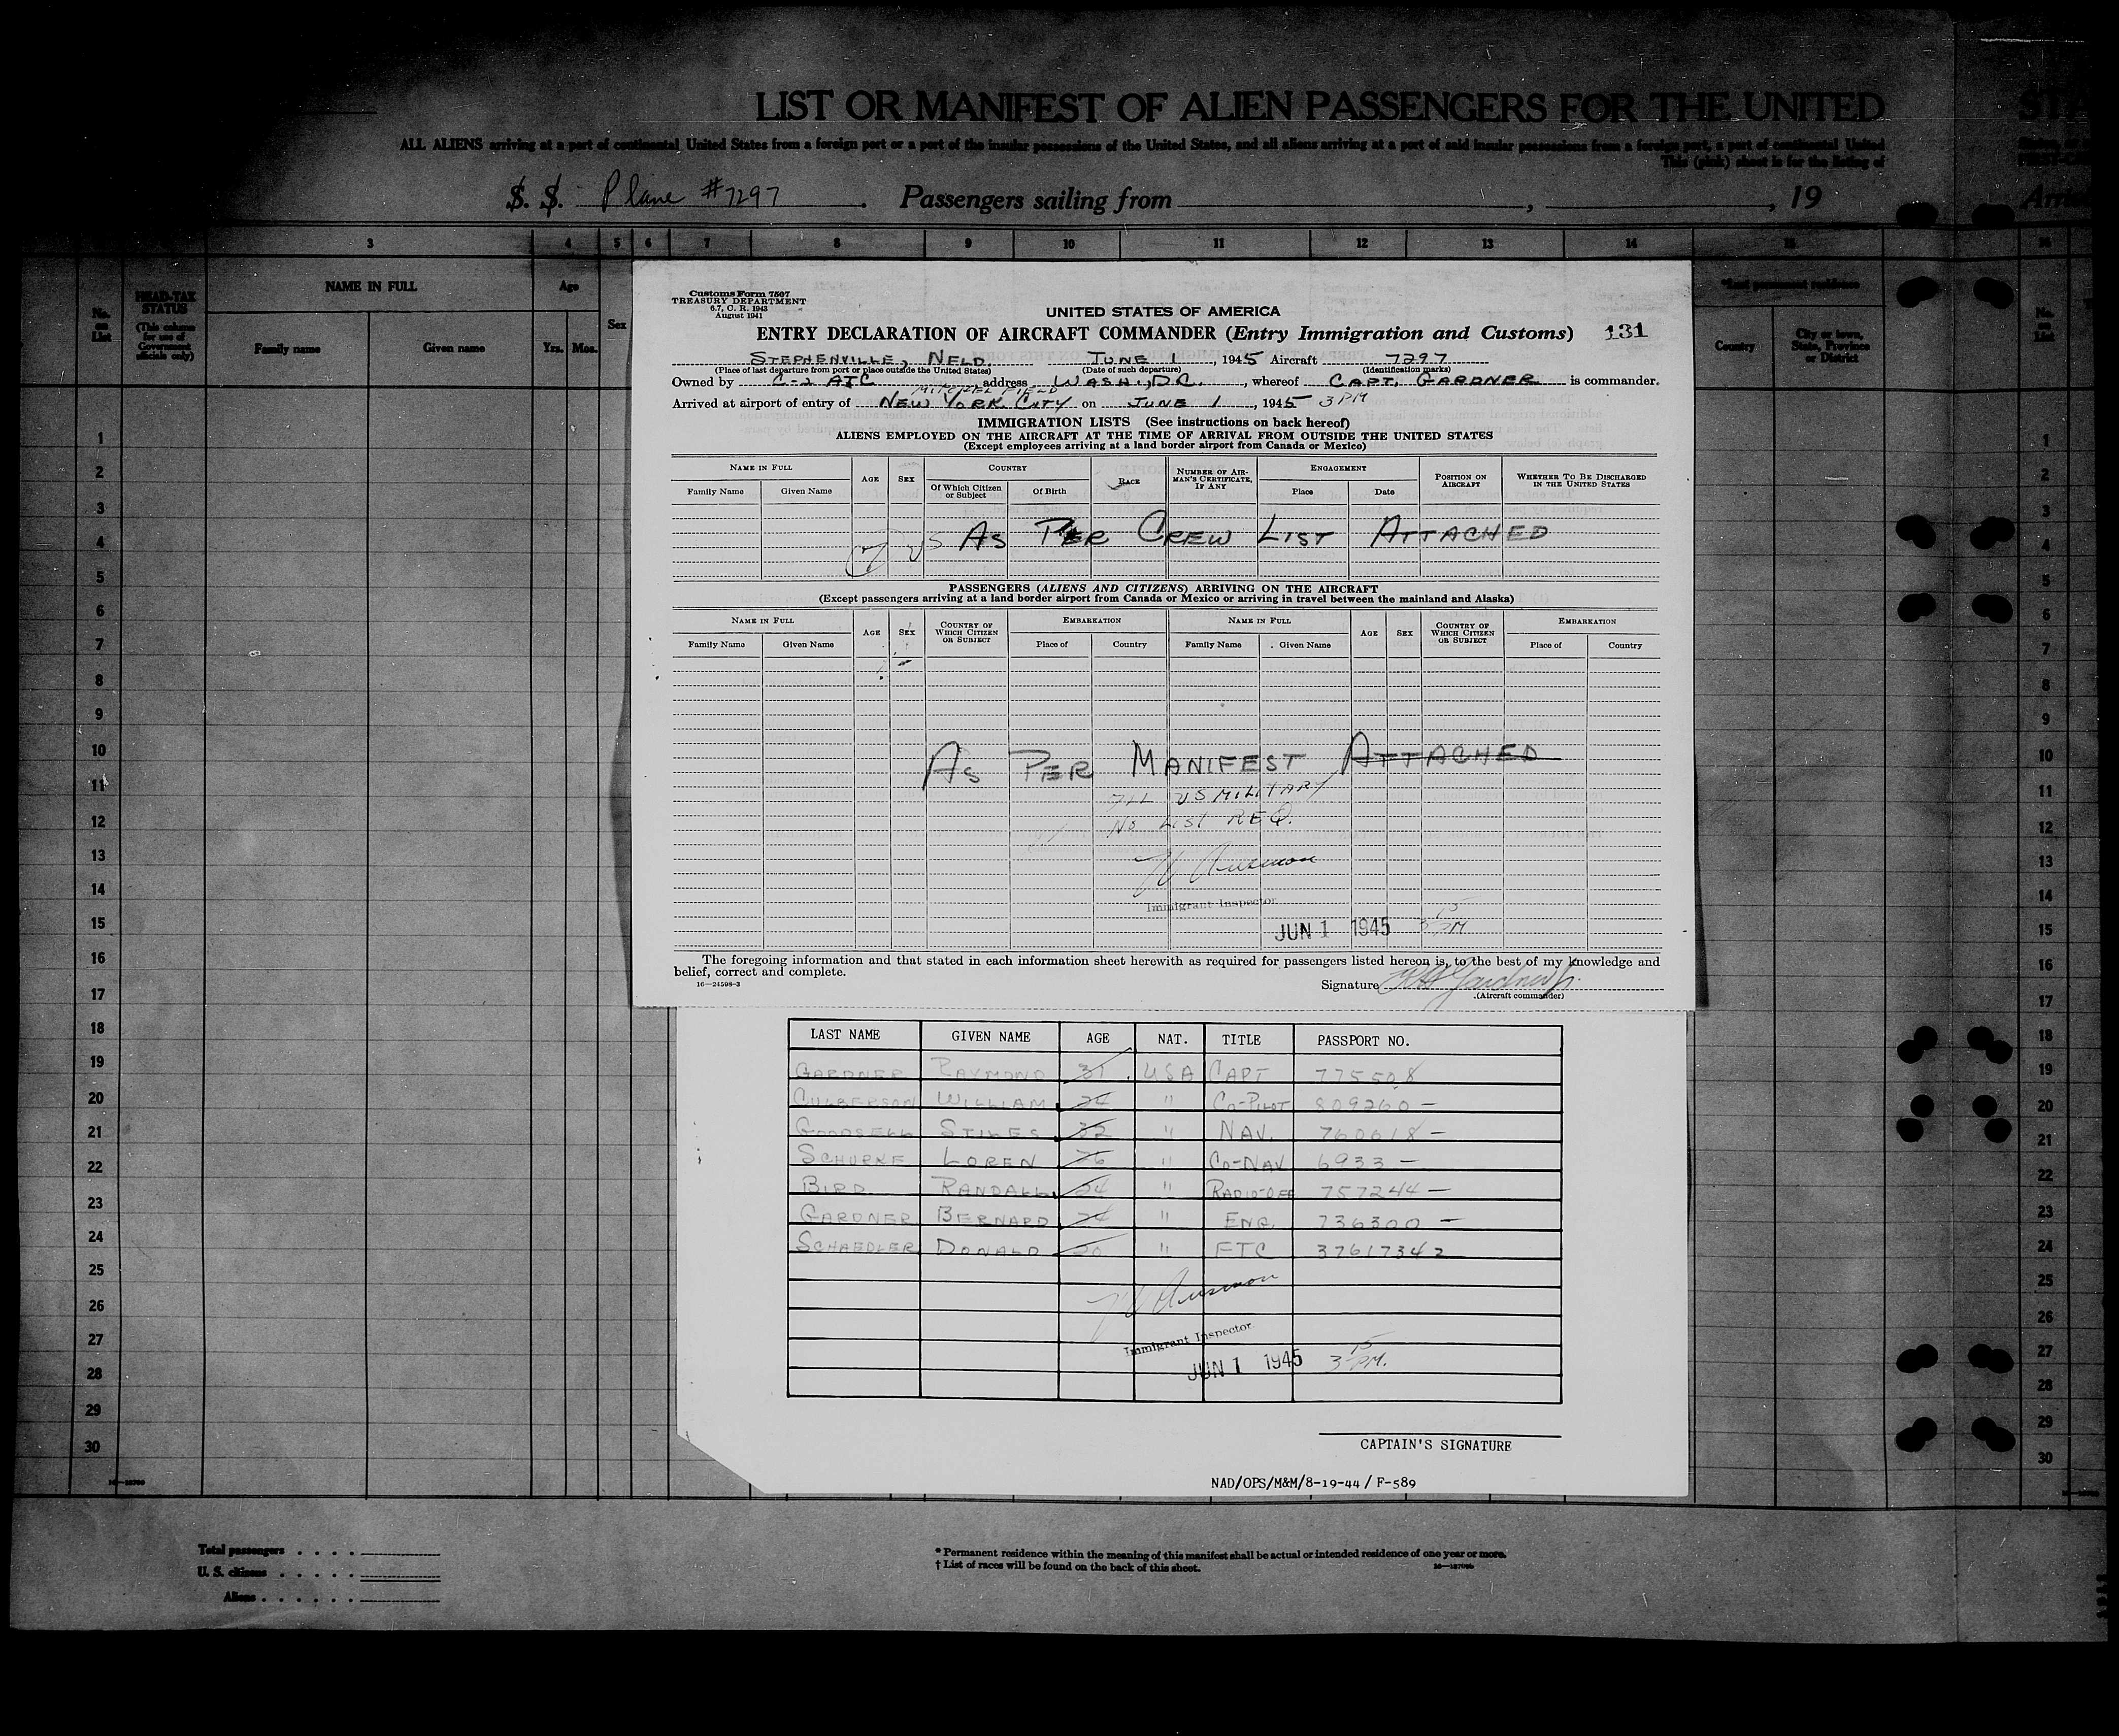 LIST OR MANIFEST OF ALIEN PASSENGERS FOR THE UNITED STA
ALL ALIENS arriving at a port of continental United States from a foreign port or a port of the insular possessions of the United States, and all aliens arriving at a port of said insular possessions from a foreign port, a port of continental United
This (pink) sheet is for the listing of
S. S. Plane #7297. Passengers sailing from , , 19
3 4 5 6 7 8 9 10 11 12 13 14 15 16
No. on List
HEAD-TAX STATUS
(This column for use of Government officials only)
NAME IN FULL
Family name Given name
Age
Yrs. Mos.
Sex
*Last permanent residence
Country
City or town, State, Province or District
No. on List
Customs Form 7507
TREASURY DEPARTMENT
6.7, C. R. 1943
August 1941
UNITED STATES OF AMERICA
ENTRY DECLARATION OF AIRCRAFT COMMANDER (Entry Immigration and Customs) 131
STEPHENVILLE, NFLD. JUNE 1, 1945 Aircraft 7297
(Place of last departure from port or place outside the United States) (Date of such departure) (Identification marks)
Owned by C-2 ATC, address WASH., D.C., whereof CAPT. GARDNER is commander.
MITCHEL FIELD
Arrived at airport of entry of NEW YORK CITY on JUNE 1, 1945 3 PM
IMMIGRATION LISTS (See instructions on back hereof)
ALIENS EMPLOYED ON THE AIRCRAFT AT THE TIME OF ARRIVAL FROM OUTSIDE THE UNITED STATES
(Except employees arriving at a land border airport from Canada or Mexico)
NAME IN FULL AGE SEX COUNTRY RACE NUMBER OF AIRMAN'S CERTIFICATE, IF ANY ENGAGEMENT POSITION ON AIRCRAFT WHETHER TO BE DISCHARGED IN THE UNITED STATES
Family Name Given Name Of Which Citizen or Subject Of Birth Place Date
7 US AS PER CREW LIST ATTACHED
PASSENGERS (ALIENS AND CITIZENS) ARRIVING ON THE AIRCRAFT
(Except passengers arriving at a land border airport from Canada or Mexico or arriving in travel between the mainland and Alaska)
NAME IN FULL AGE SEX COUNTRY OF WHICH CITIZEN OR SUBJECT EMBARKATION NAME IN FULL AGE SEX COUNTRY OF WHICH CITIZEN OR SUBJECT EMBARKATION
Family Name Given Name Place of Country Family Name Given Name Place of Country
AS PER MANIFEST ATTACHED
ALL US MILITARY
NO LIST REQ.
Immigrant Inspector
JUN 1 1945 3 15 PM
The foregoing information and that stated in each information sheet herewith as required for passengers listed hereon is, to the best of my knowledge and
belief, correct and complete.
16—24598-3
Signature
(Aircraft commander)
LAST NAME GIVEN NAME AGE NAT. TITLE PASSPORT NO.
GARDNER RAYMOND 31 USA CAPT 775508
CULBERSON WILLIAM 24 " CO-PILOT 809260 —
GOODSELL STILES 32 " NAV. 760618 —
SCHURKE LOREN 26 " CO-NAV 6933 —
BIRD RANDALL 24 " RADIO-OFF 757244 —
GARDNER BERNARD 24 " ENG. 736300 —
SCHAEDLER DONALD 20 " FTC 37617342
Immigrant Inspector
JUN 1 1945 3 15 PM.
CAPTAIN'S SIGNATURE
NAD/OPS/M&M/8-19-44 / F-589
1 1
2 2
3 3
4 4
5 5
6 6
7 7
8 8
9 9
10 10
11 11
12 12
13 13
14 14
15 15
16 16
17 17
18 18
19 19
20 20
21 21
22 22
23 23
24 24
25 25
26 26
27 27
28 28
29 29
30 30
Total passengers
U. S. citizens
Aliens
* Permanent residence within the meaning of this manifest shall be actual or intended residence of one year or more.
† List of races will be found on the back of this sheet.